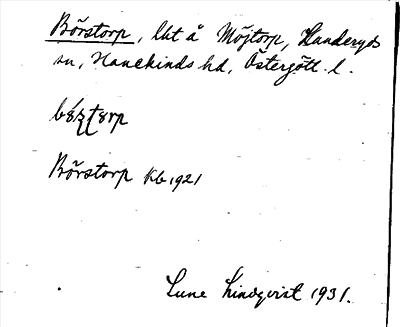 Börstorp, lht å Möjtorp, Hunderyds
sn, Hanekinds hd, Östergötl. l.
Börstorp kb 1921
Sune Lindqvist 1931.